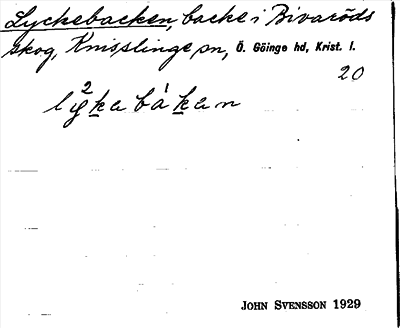 Lyckebacken, backe i Bivaröds
skog, Knisslinge sn, Ö. Göinge hd, Krist. l.
20
JOHN SVENSSON 1929